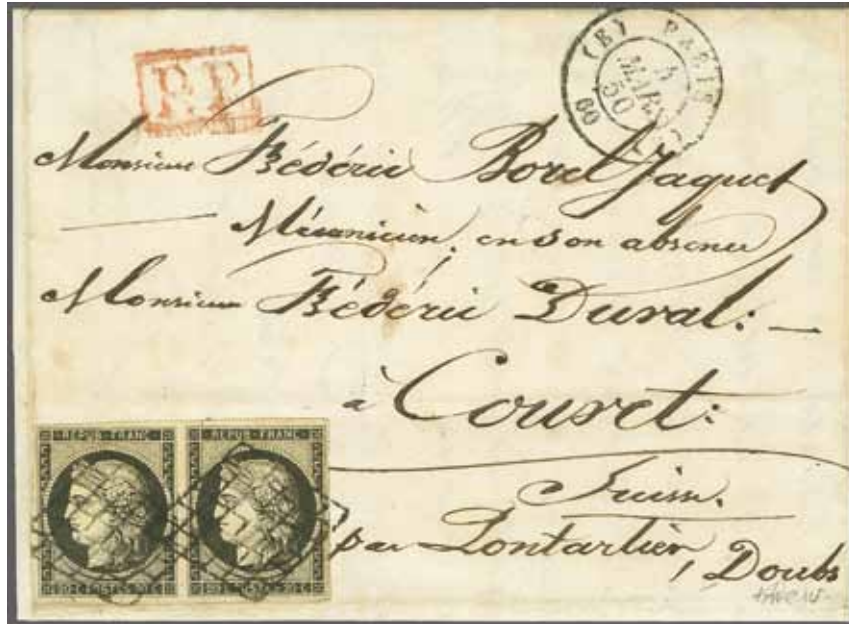 P.P.
(B) PARIS (B)
5
MARS
50
60
Monsieur Frédéric Borel Jaquet
Mécanicien, en son absence
Monsieur Frédéric Duval:
à Couvet:
Suisse.
par Pontarlier, Doubs
REPUB. FRANC.
20 C POSTES 20 C
REPUB. FRANC.
20 C POSTES 20 C